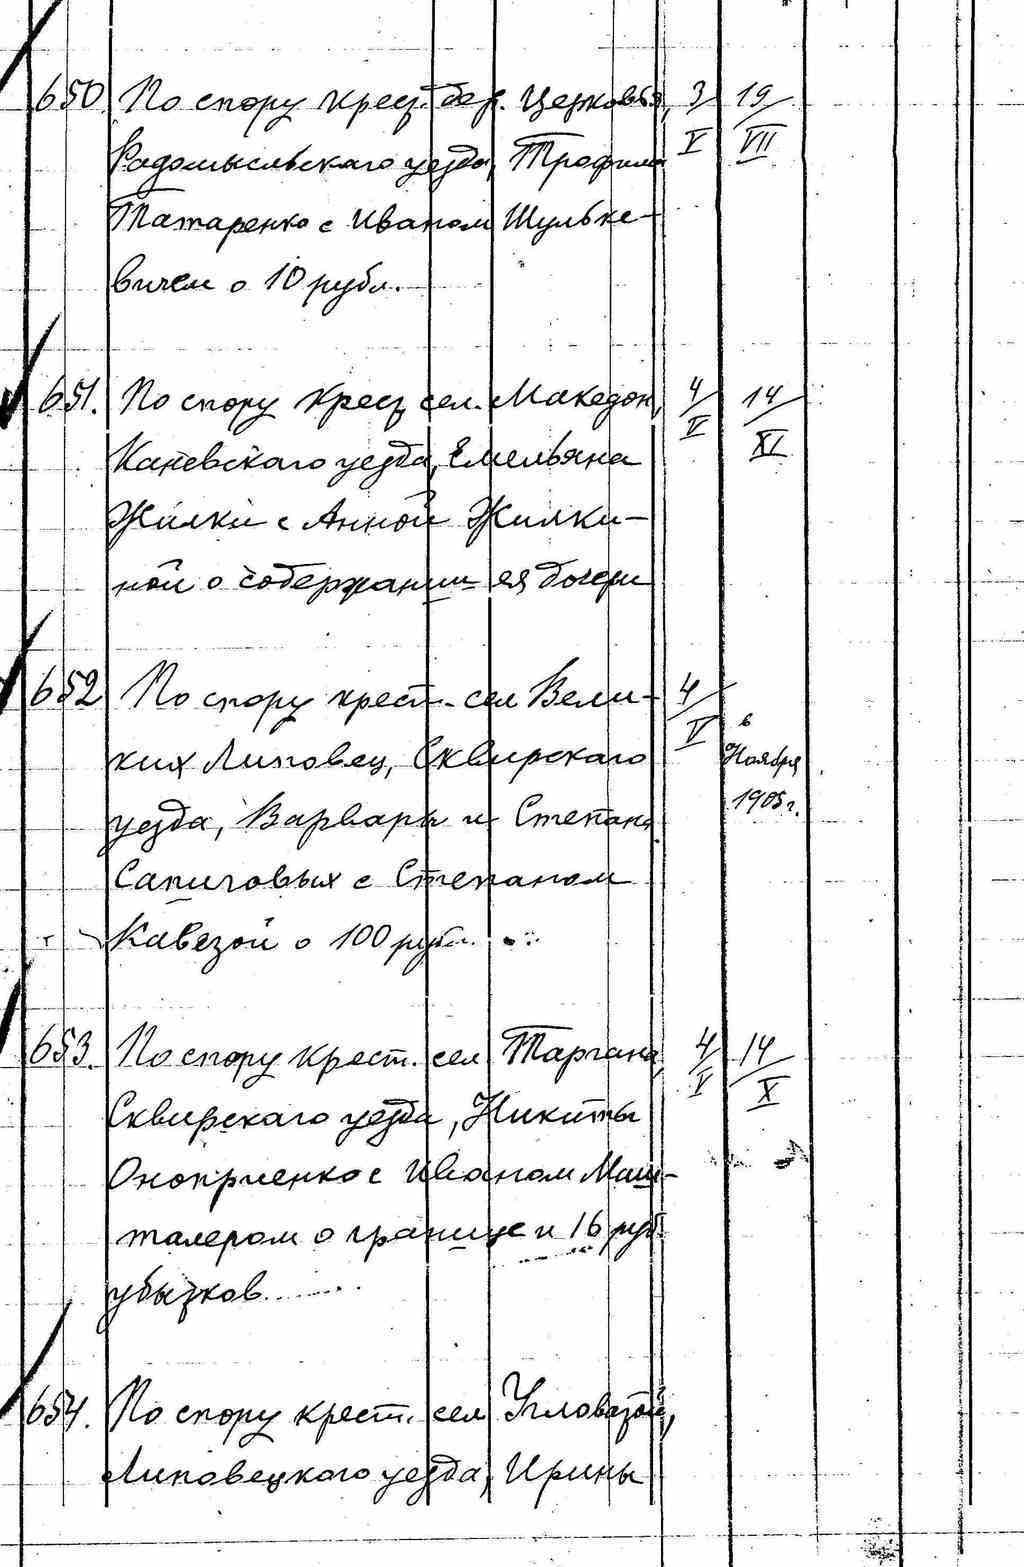 650. По спору крест. дер. Церковья, 3/V 19/VII
Радомысльскаго уезда, Трофима
Татаренко с Иваном Шульке-
вичем о 10 рубл.
651. По спору крест. сел. Македон, 4/V 14/XI
Каневскаго уезда, Емельяна
Жилки с Анной Жилки-
ной о содержании ея дочери
652 По спору крест. сел Вели- 4/V
ких Липовец, Сквирскаго
в Ноября 1905 г.
уезда, Варвары и Степана
Сапиговых с Степаном
Кавезой о 100 рубл.
653. По спору крест. сел Таргана, 4/V 14/X
Сквирскаго уезда, Никиты
Оноприенко с Иваном Маш-
талером о границе и 16 руб.
убытков
654. По спору крест. сел Угловатой,
Липовецкого уезда, Ирины